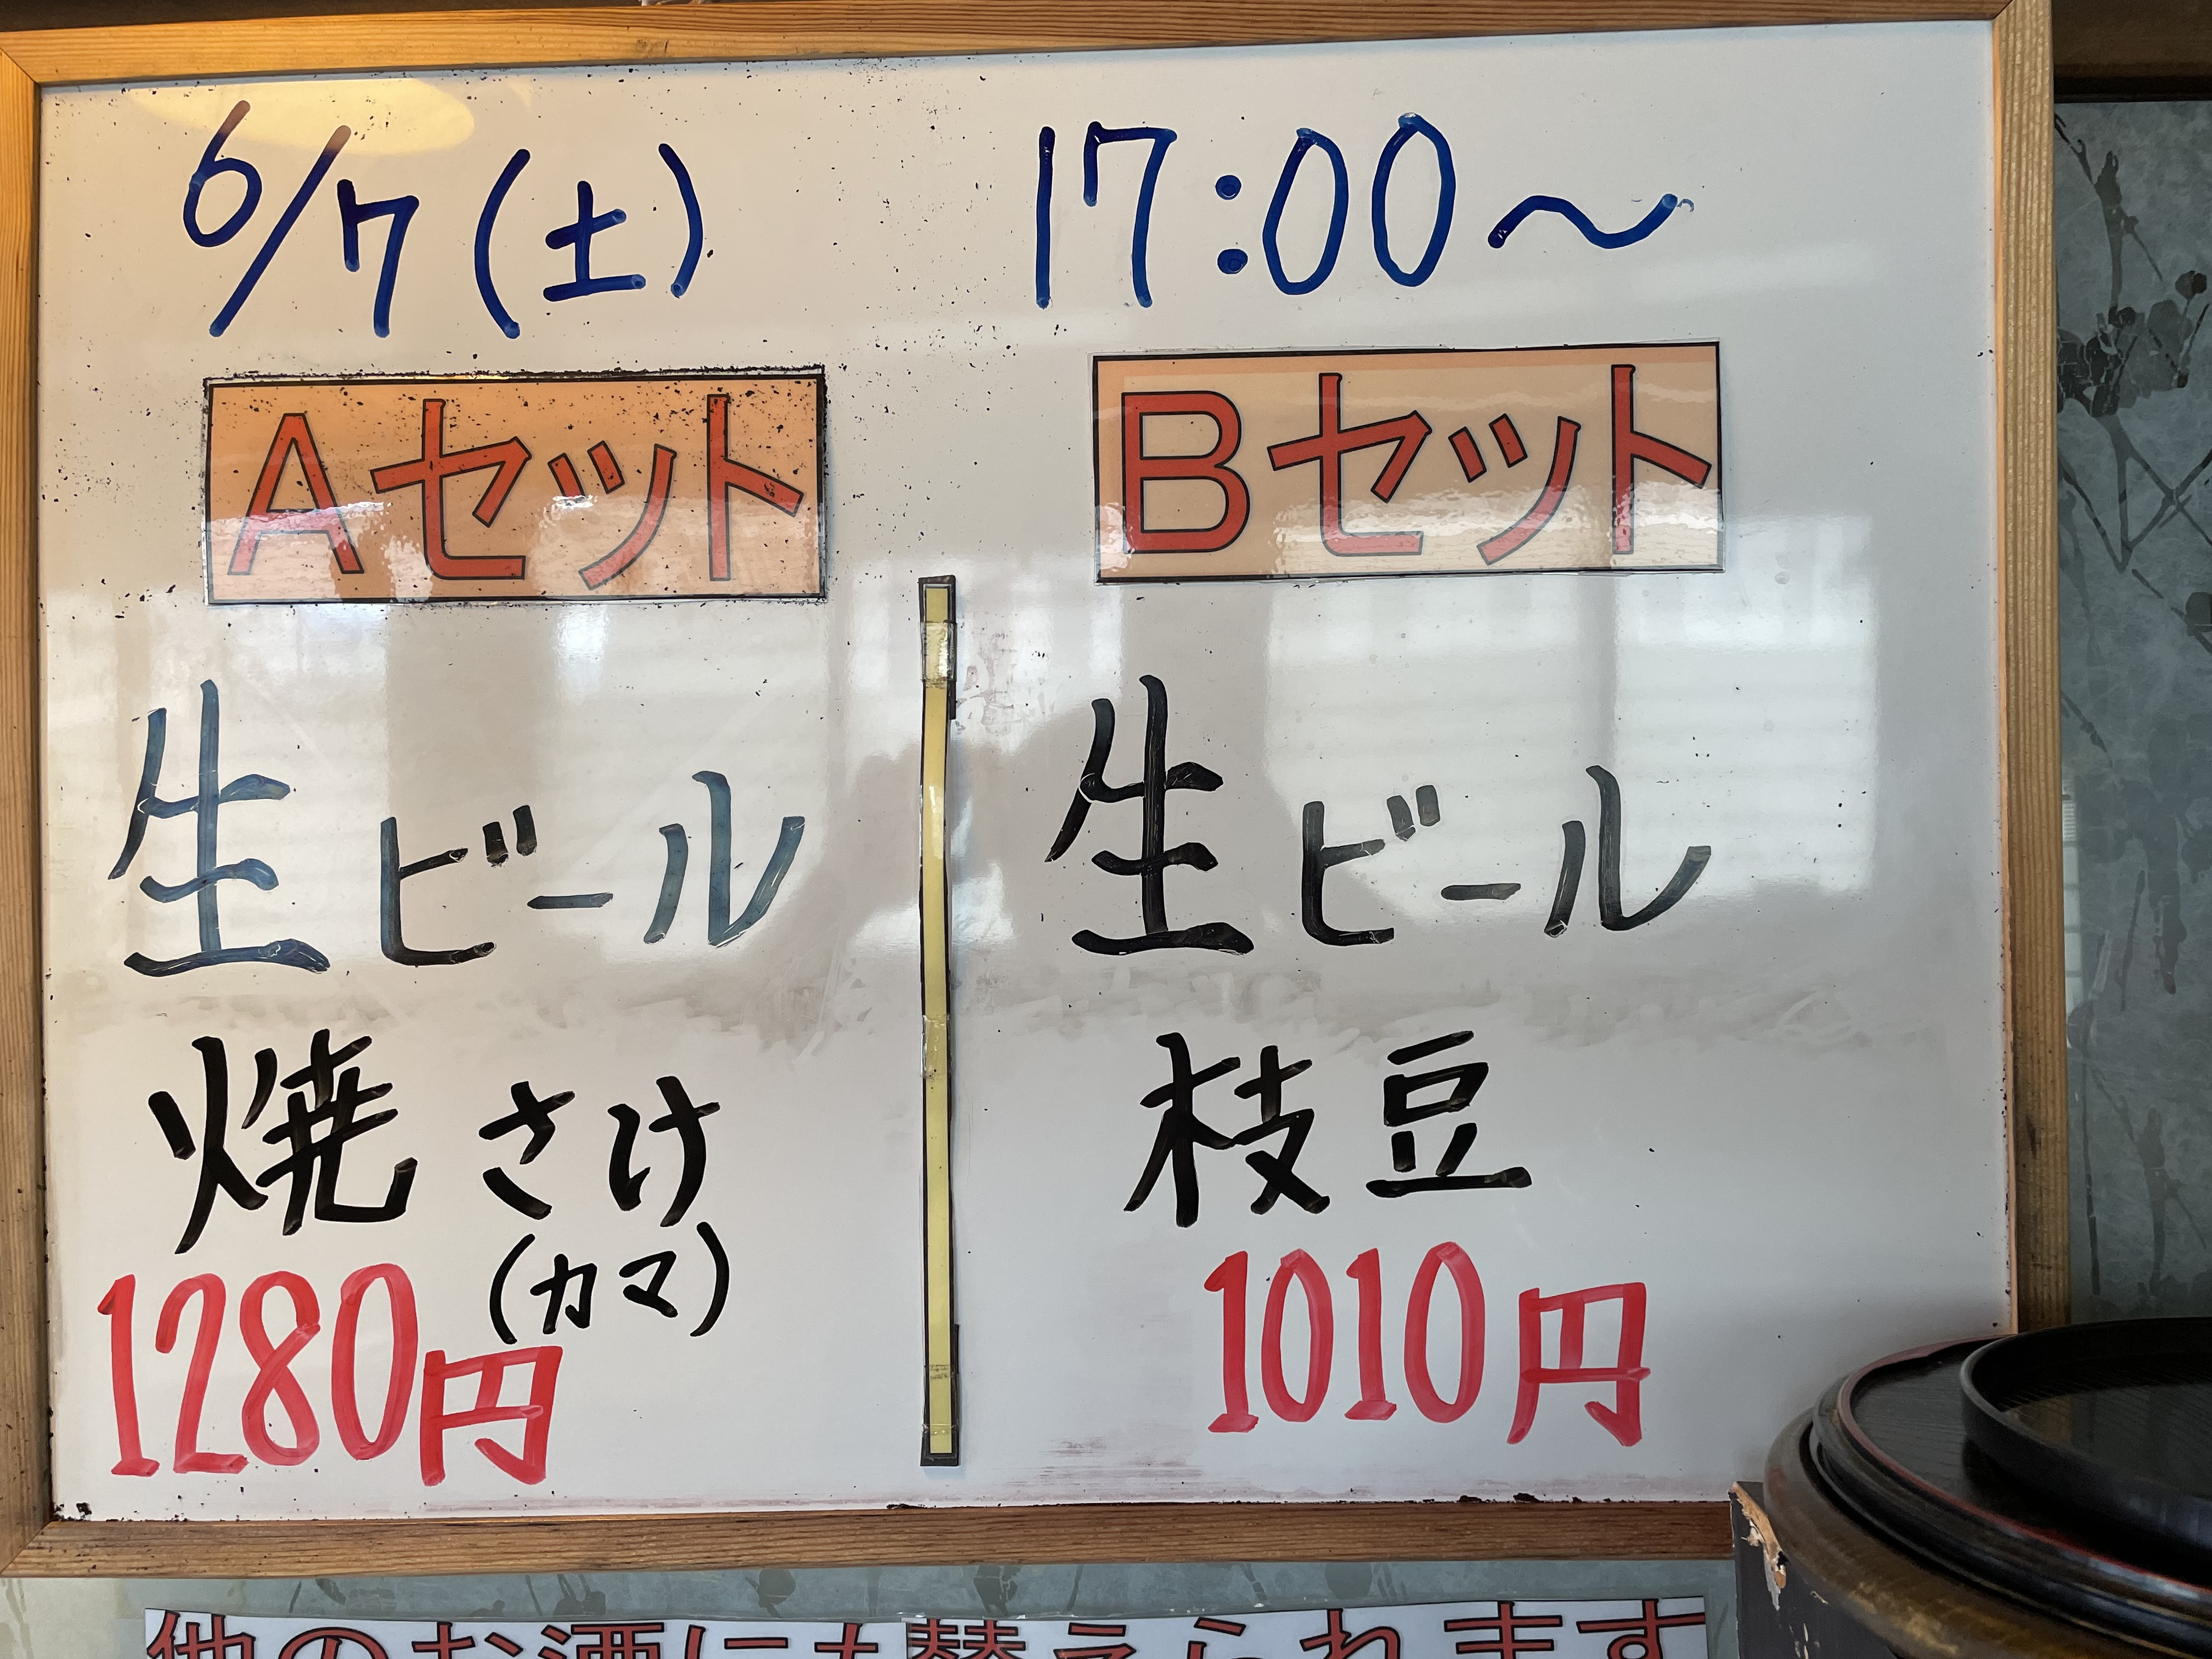 6/7(土) 17:00～
Aセット
生ビール
焼さけ
(カマ)
1280円
Bセット
生ビール
枝豆
1010円
他のお酒にも替えられます